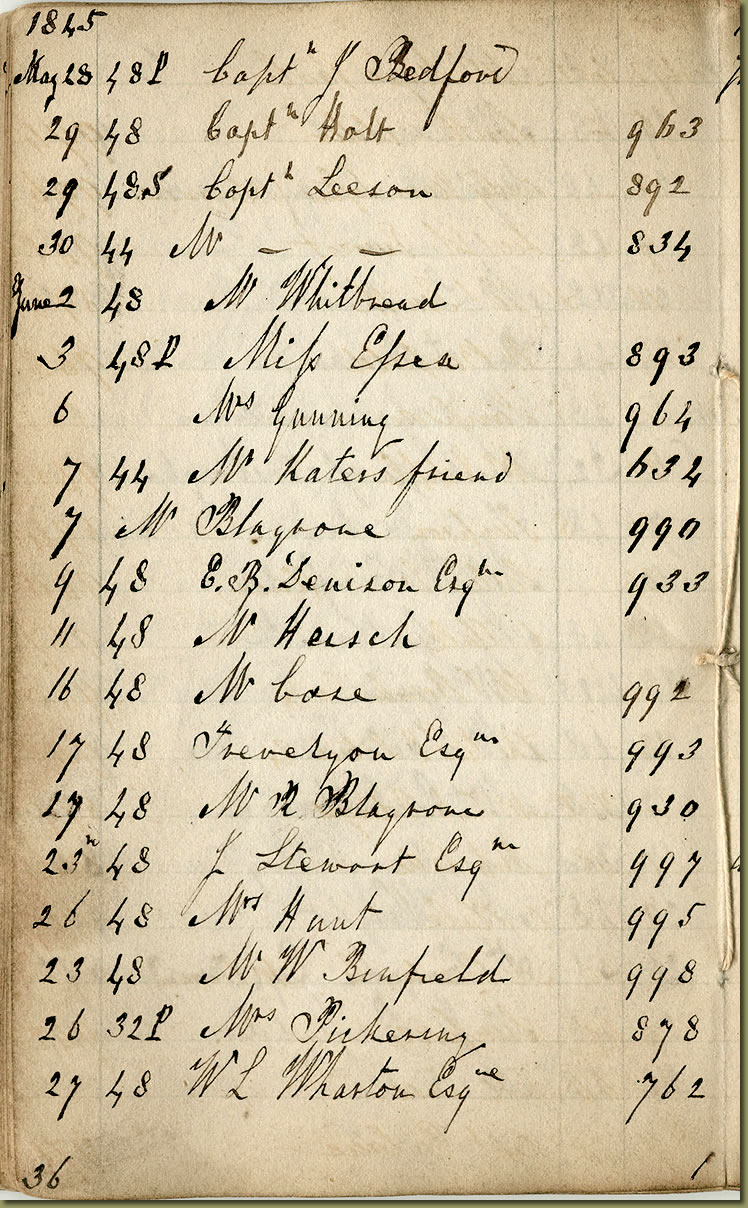 1845
May 28 48P Captn J Bedford
29 48 Captn Holt 963
29 48S Captn Leeson 892
30 44 Mr — — 834
June 2 48 Mr Whitbread
3 48P Miss Essex 893
6 Mrs Gunning 964
7 44 Mr Katers friend 634
7 Mr Blagrove 990
9 48 E. B. Denison Esqre 933
11 48 Mr Hersch
16 48 Mr Case 992
17 48 Trevelyon Esqre 993
17 48 Mr R Blagrove 930
23 48 J Stewart Esqre 997
26 48 Mrs Hunt 995
23 48 Mr W Binfield 998
26 32P Mrs Pickering 878
27 48 W L Wharton Esqre 762
36 1